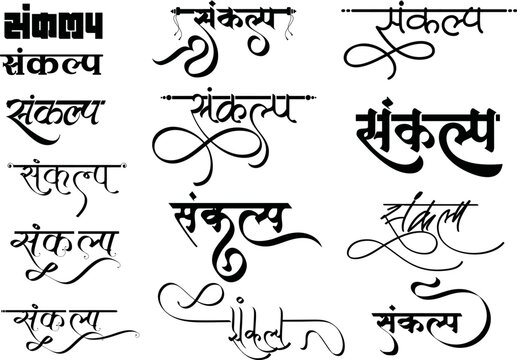 संकल्प
संकल्प
संकल्प
संकल्प
संकल्प
संकल्प
संकल्प
संकल्प
संकल्प
संकल्प
संकल्प
संकल्प
संकल्प
संकल्प